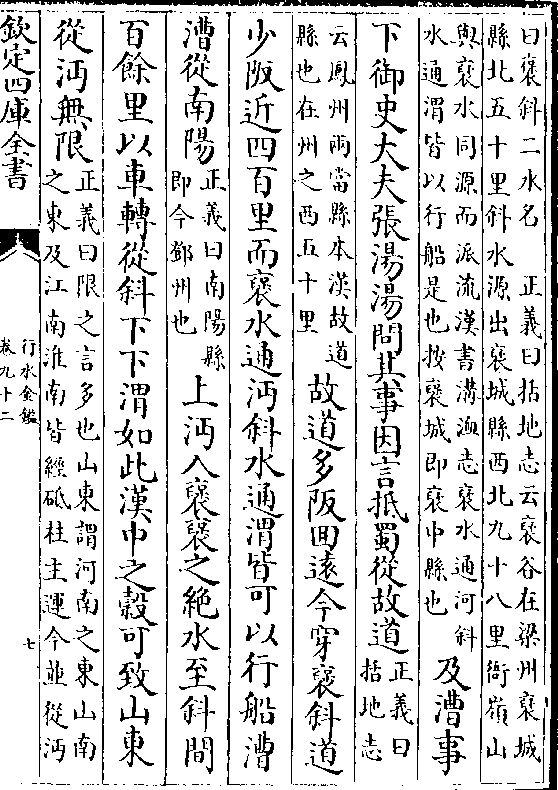 曰襃斜二水名　正義曰括地志云襃谷在梁州襃城
縣北五十里斜水源出襃城縣西北九十八里衙嶺山
與襃水同源而派流漢書溝洫志襃水通沔斜
水通渭皆以行船是也按襃城即襃中縣也
及漕事
下御史大夫張湯湯問其事因言抵蜀從故道
正義曰
括地志
云鳳州兩當縣本漢故道
縣也在州之西五十里
故道多阪回遠今穿襃斜道
少阪近四百里而襃水通沔斜水通渭皆可以行船漕
漕從南陽
正義曰南陽縣
即今鄧州也
上沔入襃襃之絶水至斜間
百餘里以車轉從斜下下渭如此漢中之榖可致山東
從沔無限
正義曰限之言多也山東謂河南之東山南
之東及江南淮南皆經砥柱主運今並從沔
欽定四庫全書
行水金鑑
卷九十二
七